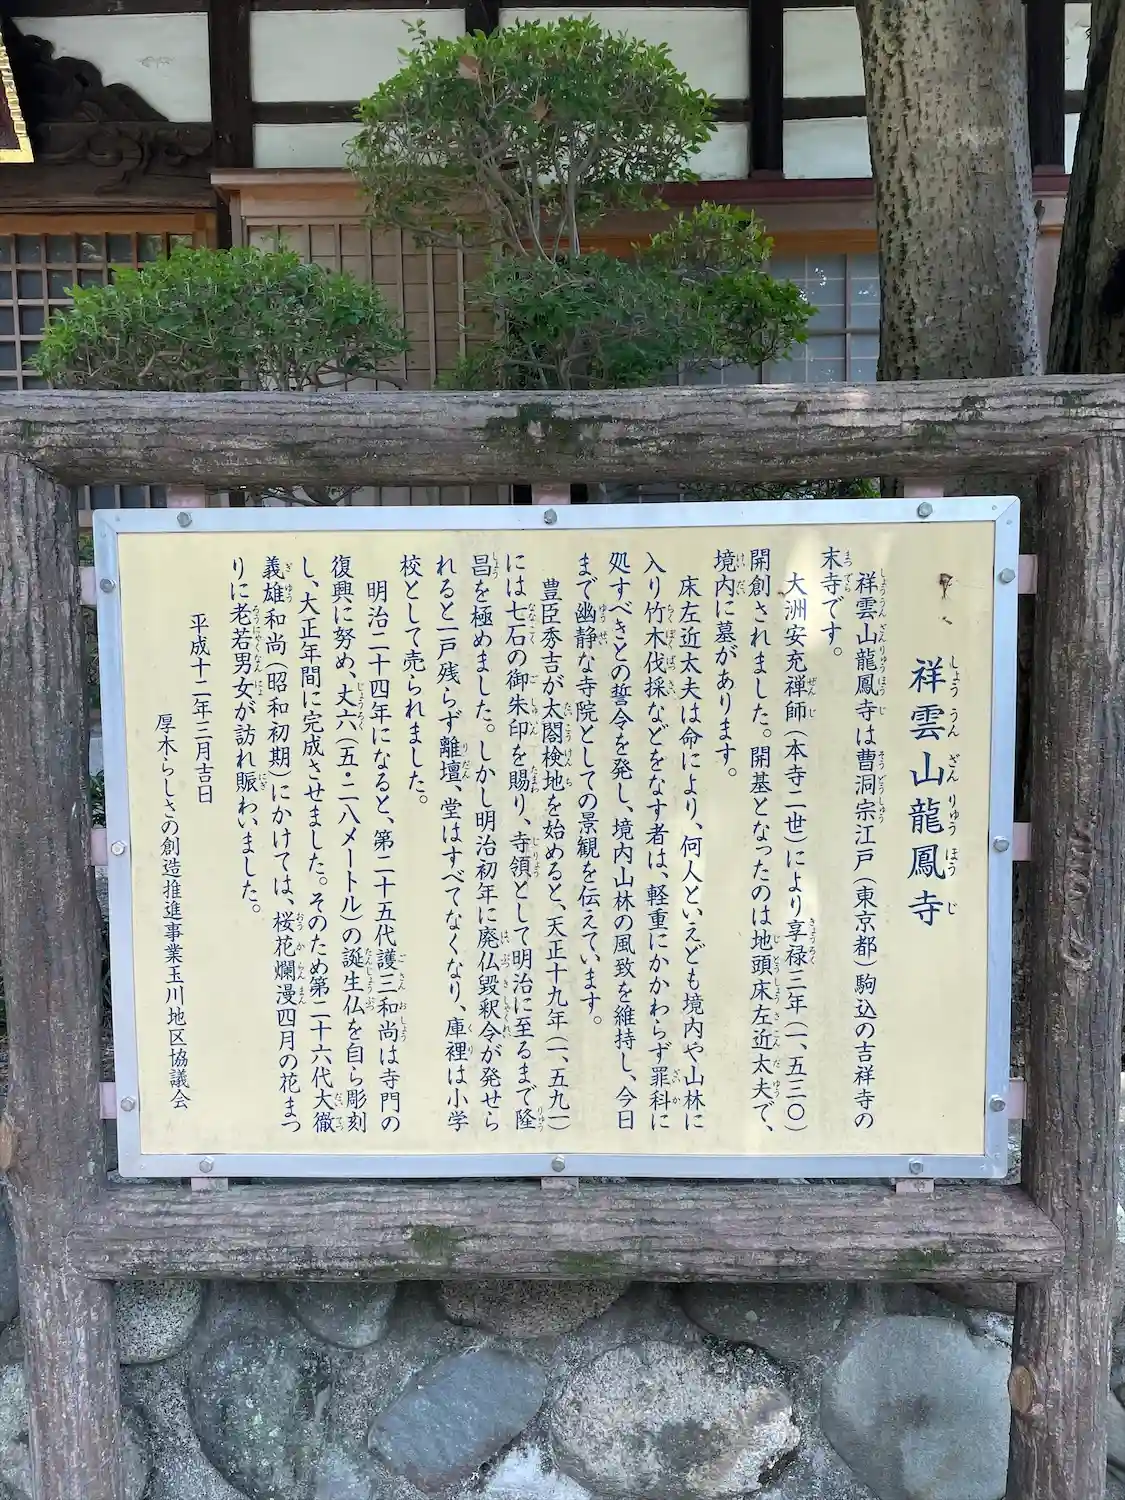 祥雲山龍鳳寺
祥雲山龍鳳寺は曹洞宗江戸(東京都)駒込の吉祥寺の
末寺です。
大洲安充禅師(本寺二世)により享禄三年(一、五三〇)
開創されました。開基となったのは地頭床左近太夫で、
境内に墓があります。
床左近太夫は命により、何人といえども境内や山林に
入り竹木伐採などをなす者は、軽重にかかわらず罪科に
処すべきとの誓令を発し、境内山林の風致を維持し、今日
まで幽静な寺院としての景観を伝えています。
豊臣秀吉が太閤検地を始めると、天正十九年(一、五九一)
には七石の御朱印を賜り、寺領として明治に至るまで隆
昌を極めました。しかし明治初年に廃仏毀釈令が発せら
れると一戸残らず離壇、堂はすべてなくなり、庫裡は小学
校として売られました。
明治二十四年になると、第二十五代護三和尚は寺門の
復興に努め、丈六(五・二八メートル)の誕生仏を自ら彫刻
し、大正年間に完成させました。そのため第二十六代大徹
義雄和尚(昭和初期)にかけては、桜花爛漫四月の花まつ
りに老若男女が訪れ賑わいました。
平成十二年三月吉日
厚木らしさの創造推進事業玉川地区協議会